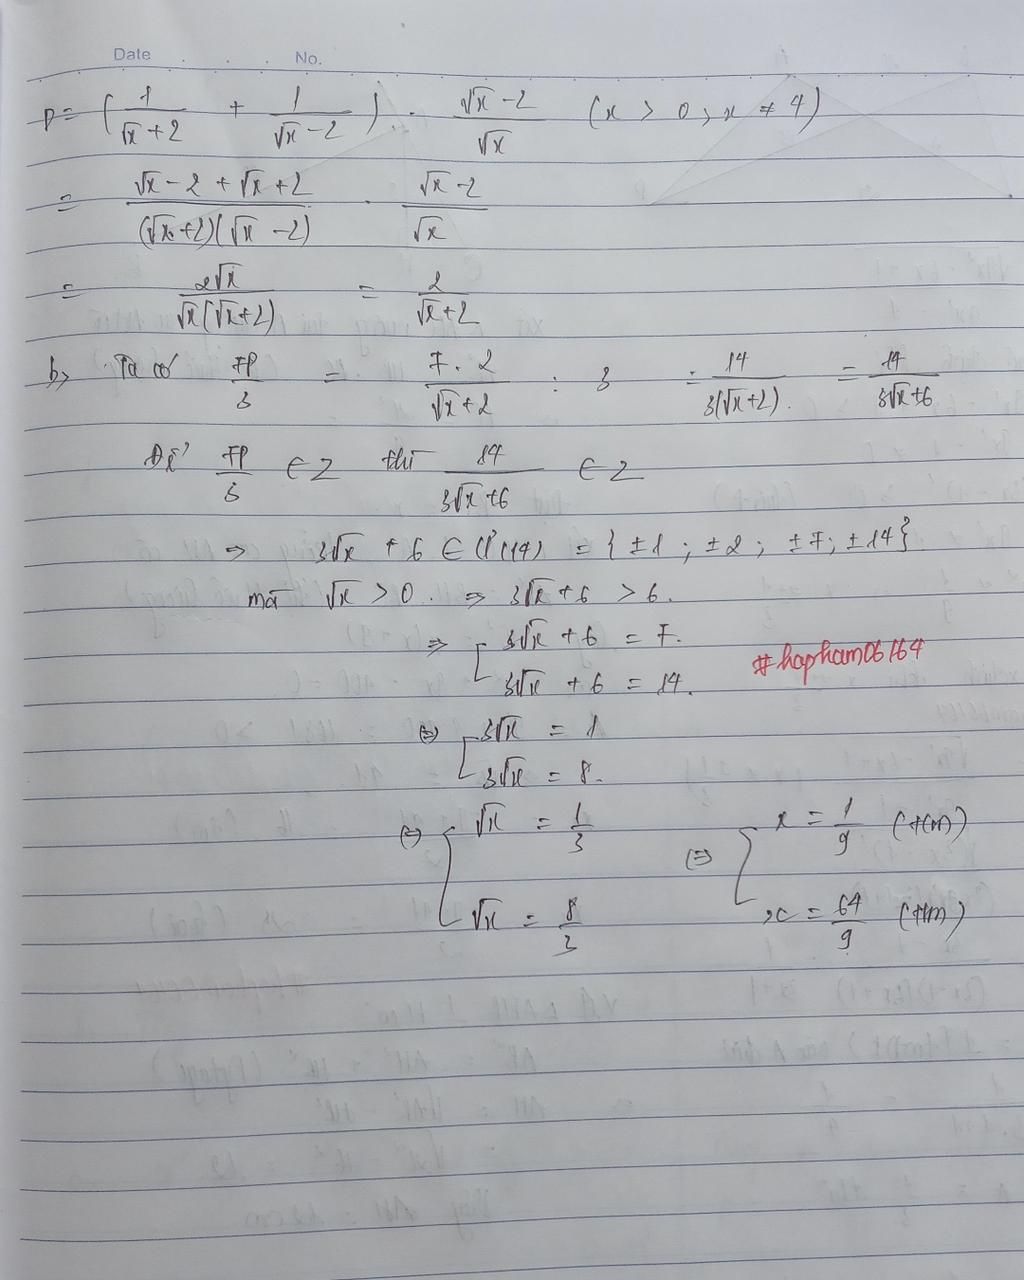 Date . . . No.
P = (1/(√x+2) + 1/(√x-2)) . (√x-2)/√x (x > 0 ; x ≠ 4)
= (√x-2+√x+2)/((√x+2)(√x-2)) . (√x-2)/√x
= 2√x/(√x(√x+2)) = 2/(√x+2)
b, Ta có 7P/3 = 7.2/(√x+2) : 3 = 14/(3(√x+2)) = 14/(3√x+6)
Để 7P/3 ∈ Z thì 14/(3√x+6) ∈ Z
⇒ 3√x + 6 ∈ Ư(14) = { ±1 ; ±2 ; ±7 ; ±14 }
mà √x > 0. ⇒ 3√x + 6 > 6.
⇒ [ 3√x + 6 = 7.
3√x + 6 = 14.
#hapham06164
⇔ [ 3√x = 1
3√x = 8.
⇔ [ √x = 1/3 ⇔ [ x = 1/9 (tm)
√x = 8/3 x = 64/9 (tm)